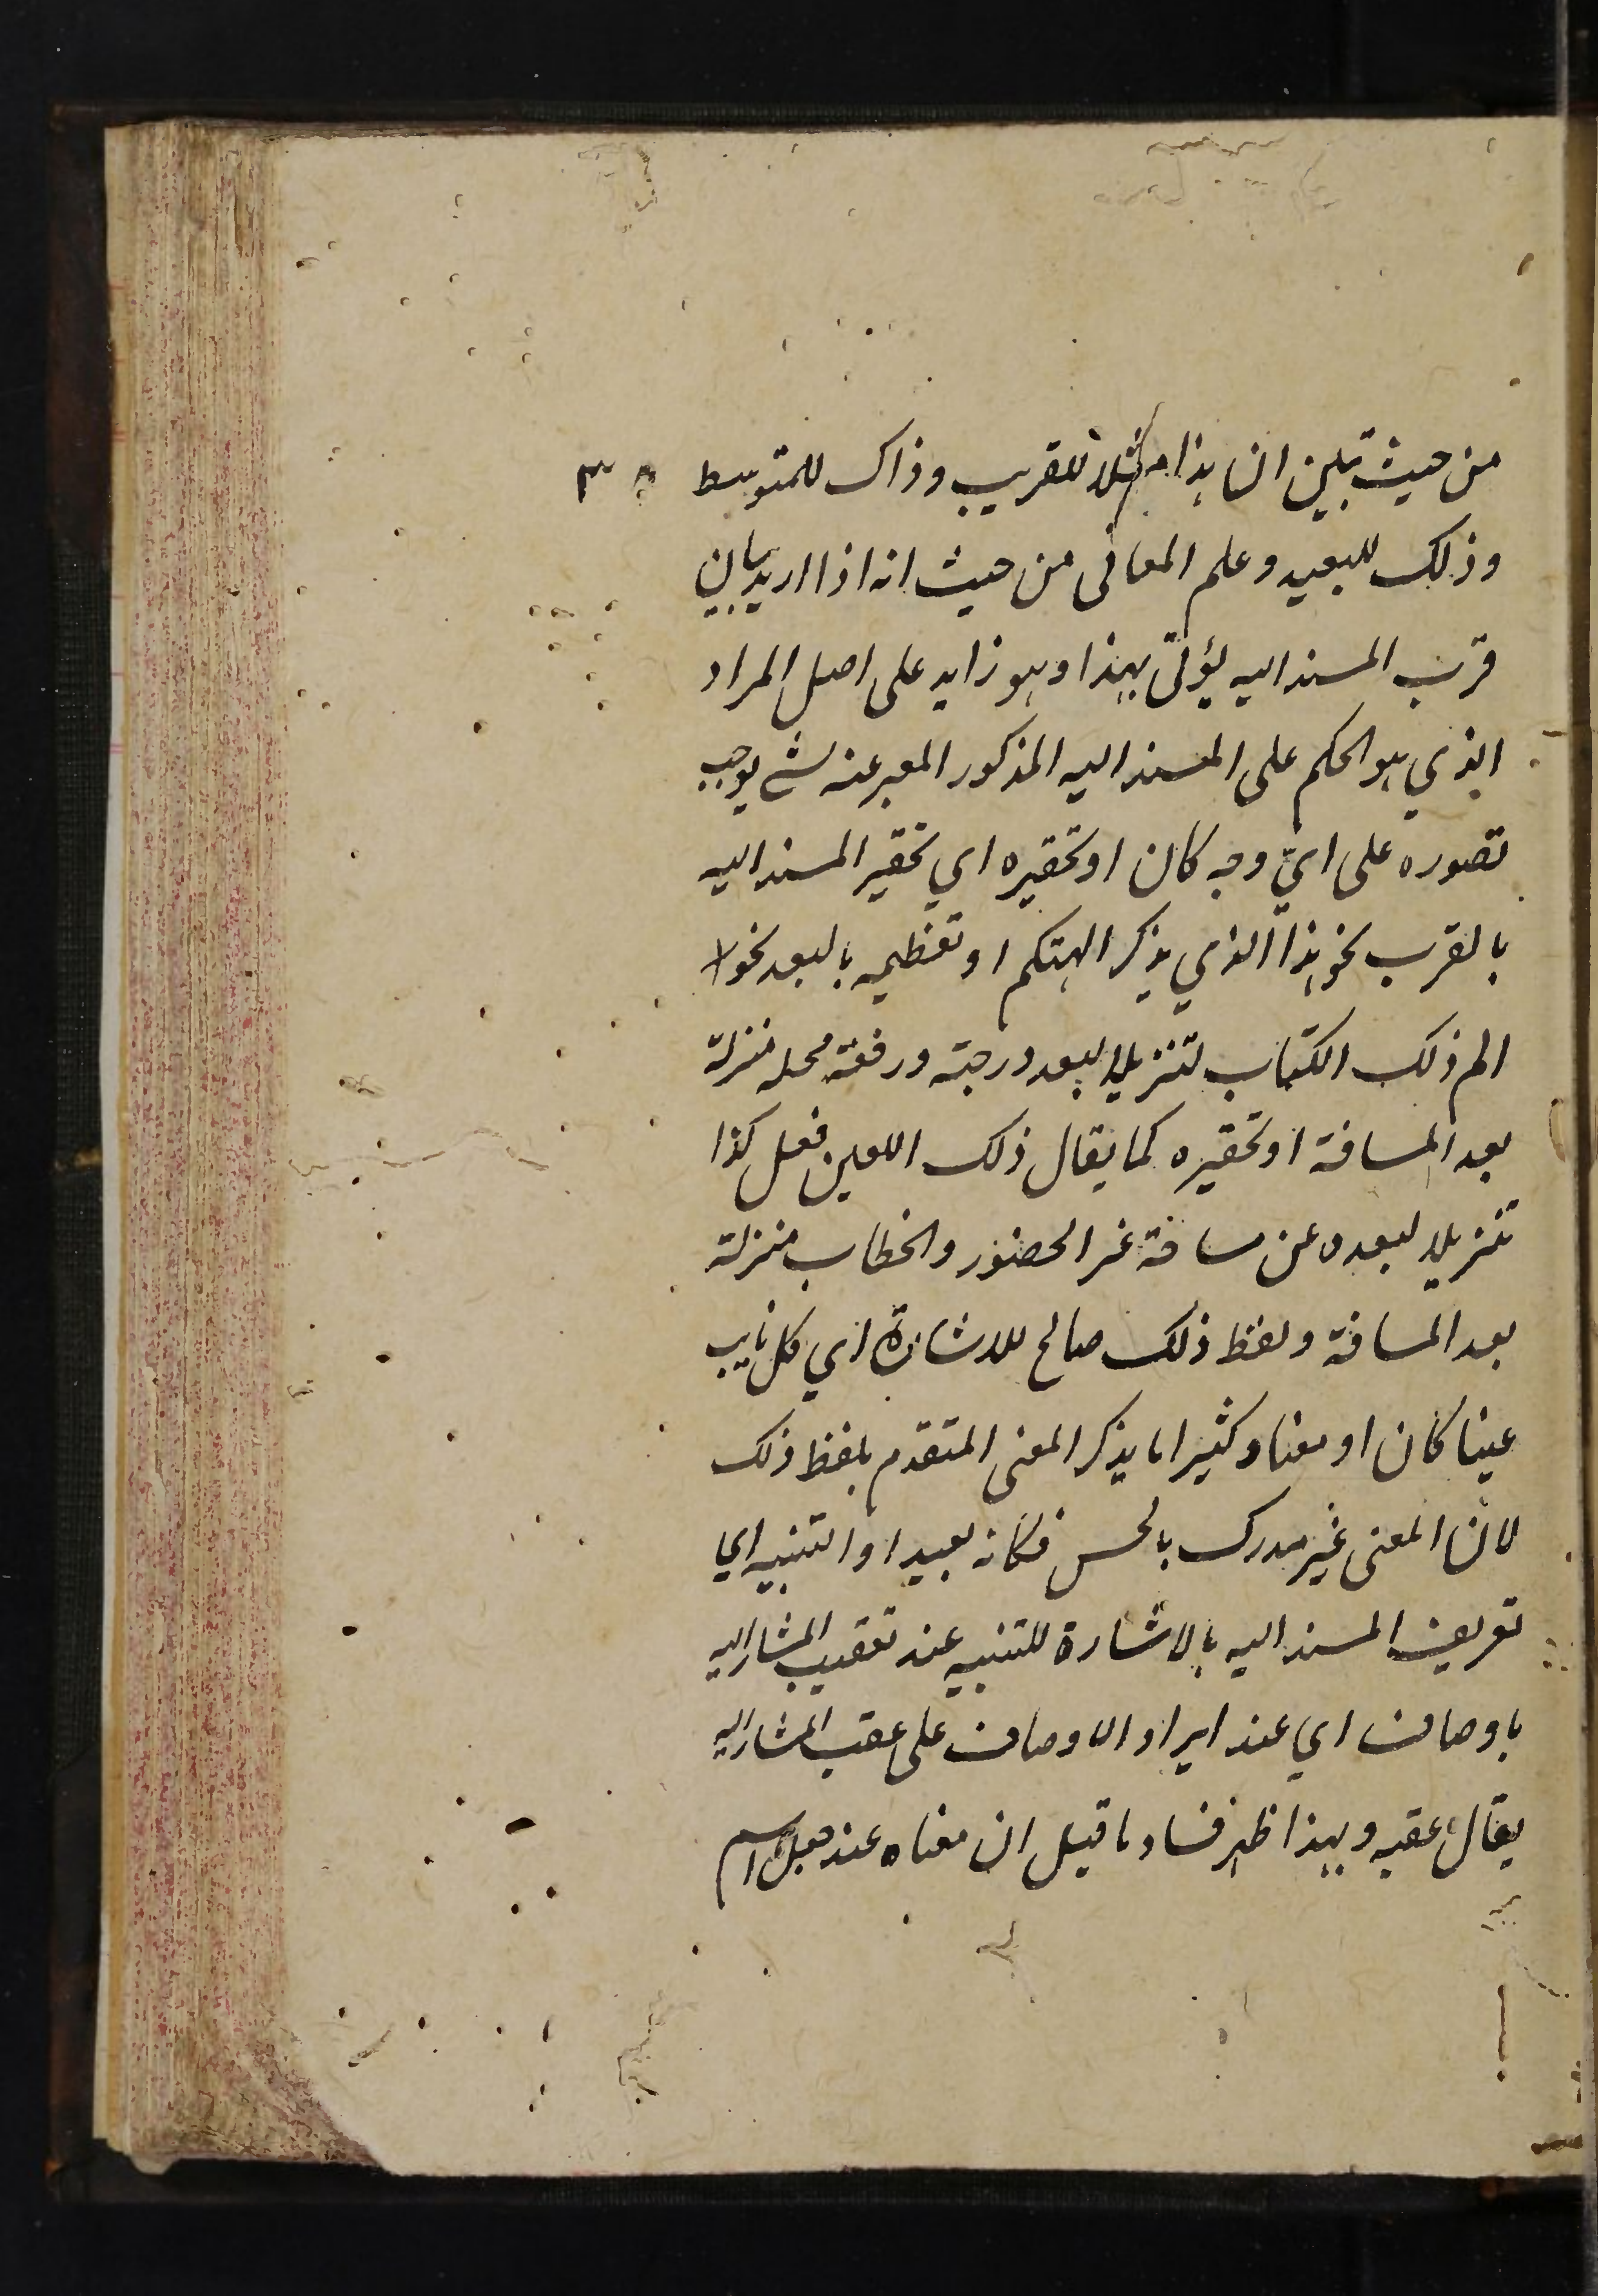 من حيث تبين ان هذا مثلا للقريب وذاك للمتوسط
وذلك للبعيد وعلم المعانى من حيث انه اذا اريد بيان
قرب المسند اليه يؤتى بهذا وهو زايد على اصل المراد
الذي هو الحكم على المسند اليه المذكور المعبر عنه بشئ يوجب
تصوره على ايّ وجه كان او تحقيره اي تحقير المسند اليه
بالقرب نحو هذا الذي يذكر الهتكم او تعظيمه بالبعد نحو لا
الم ذلك الكتاب تنزيلا لبعد درجته ورفعة محله منزلة
بعد المسافة او تحقيره كما يقال ذلك اللعين فعل كذا
تنزيلا لبعده عن ساحة عز الحضور والخطاب منزلة
بعد المسافة ولفظ ذلك صالح للاشارة اي كل غايب
عينا كان او معنا وكثيرا ما يذكر المعنى المتقدم بلفظ ذلك
لان المعنى غير مدرك بالحس فكانه بعيد او التنبيه اي
تعريف المسند اليه بالاشارة للتنبيه عند تعقيب المشار اليه
باوصاف اي عند ايراد الاوصاف على عقب المشار اليه
يقال عقبه وبهذا ظهر فساد ما قيل ان معناه عند جعل اسم